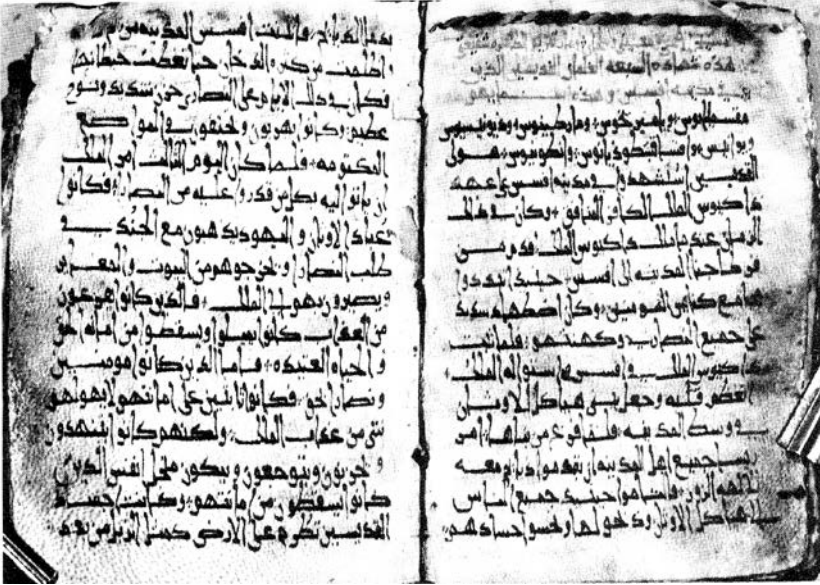 هذه شهادة السبعة الفتيان القديسين الذين
في مدينة افسس وهذه
مقسمليانوس ويامبليخوس ومارطينوس وديونيسيوس
ويوانيس وانطونيوس هولى
القديسين استشهدوا في مدينة افسس في عهد
داكيوس الملك الكافر المنافق وكان في ذلك
الزمان عندما ملك داكيوس الملك قدم من
قرطاجنا المدينه الى افسس حينيذ ابتدوا
كنايس المومنين وكان اضطهاد شديد
على جميع النصارى وكهنتهم فلما ثبت
داكيوس الملك في افسس استوا له الملك
قلبه وجعل يبني هياكل الاوثان
في وسط المدينه فلما فرغ من بناها امر
جميع اهل المدينه ان يقدموا ذبايح معه
لالهه الزور حينيذ جميع الناس
هياكل الاوثان وذبحوا لها ونجسوا اجسادهم
بدما الذبايح فامتلت افسس المدينه من
واظلمت من كثره الدخان حتا تغطت حيطانها
فكان في ذلك الايام على النصارى حزن شديد ونوح
عظيم وكانوا يهربون ويختفون في المواضع
المكتومه فلما كان اليوم الثالث امر الملك
ان ياتوا اليه بكل من قدروا عليه من النصارى فكانوا
عباد الاوثان واليهود يذهبون مع الجند في
طلب النصارى ويخرجوهم من البيوت والمغاير
ويصيرون بهم الى الملك فالذين كانوا يفزعون
من العذاب كانوا يميلوا ويسقطوا من امانه الحق
والحياه العتيده فاما الذين كانوا مومنين
ونصارى حق فكانوا ثابتين على امانتهم لا يهولهم
شي من عذاب الملك ولكنهم كانوا يتنهدون
ويحزنون ويتوجعون ويبكون من اجل انفس الذين
كانوا يسقطون من امانتهم وكانت اجساد
القديسين تطرح على الارض كمثل الزبل من بعد